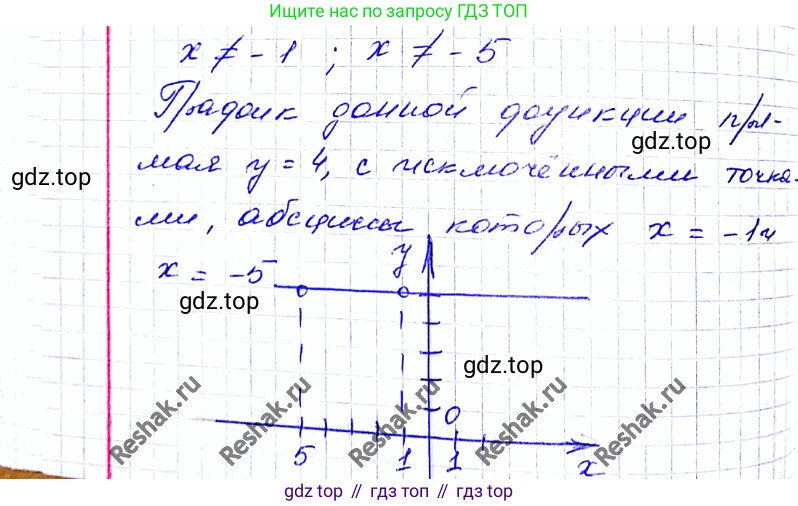 Ищите нас по запросу ГДЗ ТОП
x ≠ -1 ; x ≠ -5
График данной функции пря-
gdz.top
мая y = 4, с исключёнными точка-
gdz.top
ми, абсциссы которых x = -1 и
x = -5
y
gdz.top
gdz.top
0
5 1 1 x
Reshak.ru Reshak.ru Reshak.ru Reshak.ru Reshak.ru
gdz top // гдз топ // gdz top